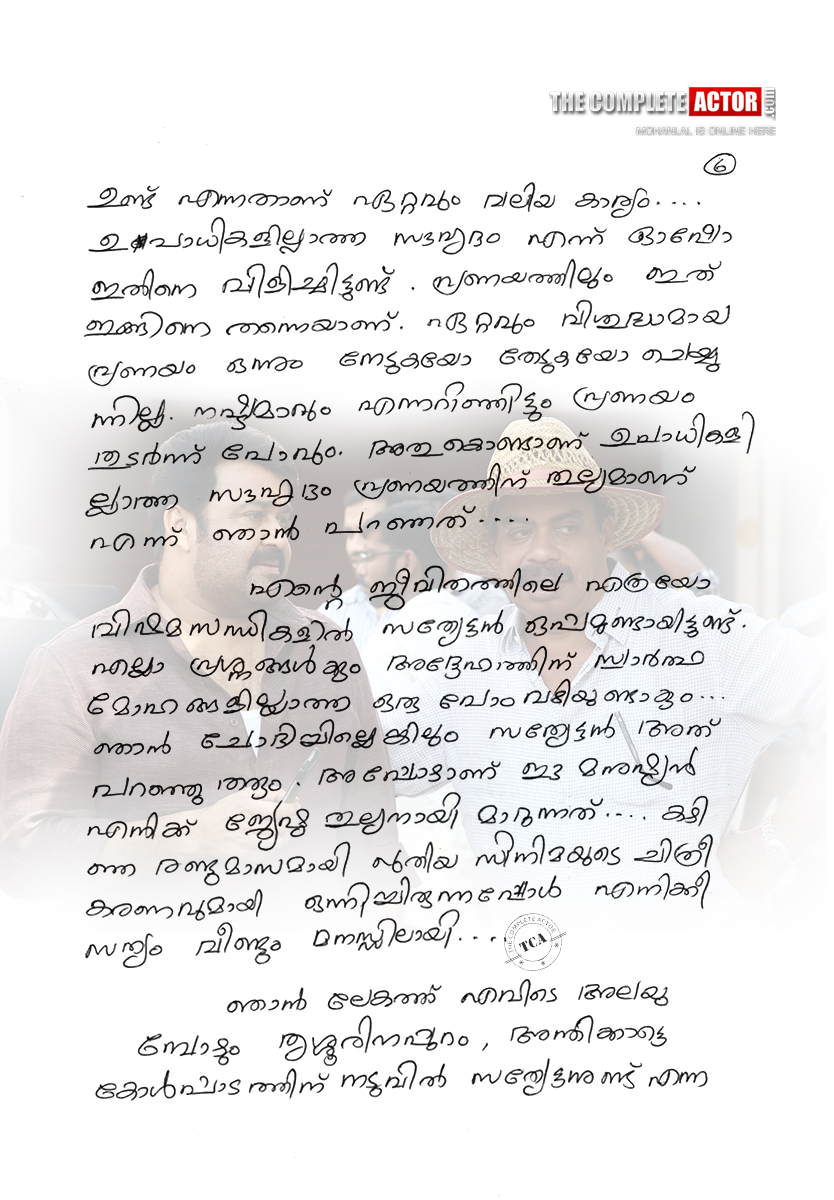 THE COMPLETE ACTOR.com
MOHANLAL IS ONLINE HERE
6
ഉണ്ട് എന്നതാണ് ഏറ്റവും വലിയ കാര്യം....
ഉപാധികളില്ലാത്ത സൗഹൃദം എന്ന് ഓഷോ
ഇതിനെ വിളിച്ചിട്ടുണ്ട്. പ്രണയത്തിലും ഇത്
ഇങ്ങിനെ തന്നെയാണ്. ഏറ്റവും വിശുദ്ധമായ
പ്രണയം ഒന്നും നേടുകയോ തേടുകയോ ചെയ്യു
ന്നില്ല. നഷ്ടമാവും എന്നറിഞ്ഞിട്ടും പ്രണയം
തുടർന്ന് പോവും. അതുകൊണ്ടാണ് ഉപാധികളി
ല്ലാത്ത സൗഹൃദം പ്രണയത്തിന് തുല്യമാണ്
എന്ന് ഞാൻ പറഞ്ഞത്....
എന്റെ ജീവിതത്തിലെ എത്രയോ
വിഷമസന്ധികളിൽ സത്യേട്ടൻ ഒപ്പമുണ്ടായിട്ടുണ്ട്.
എല്ലാ പ്രശ്നങ്ങൾക്കും അദ്ദേഹത്തിന് സ്വാർത്ഥ
മോഹങ്ങളില്ലാത്ത ഒരു പോംവഴിയുണ്ടാകും...
ഞാൻ ചോദിച്ചില്ലെങ്കിലും സത്യേട്ടൻ അത്
പറഞ്ഞു തരും. അപ്പോളാണ് ഈ മനുഷ്യൻ
എനിക്ക് ജ്യേഷ്ഠ തുല്യനായി മാറുന്നത്.... കഴി
ഞ്ഞ രണ്ടുമാസമായി പുതിയ സിനിമയുടെ ചിത്രീ
കരണവുമായി ഒന്നിച്ചിരുന്നപ്പോൾ എനിക്കീ
സത്യം വീണ്ടും മനസ്സിലായി....
THE COMPLETE ACTOR TCA
ഞാൻ ലോകത്ത് എവിടെ അലയു
മ്പോളും തൃശ്ശൂരിനപ്പുറം, അന്തിക്കാട്ടെ
കോൾപാടത്തിന് നടുവിൽ സത്യേട്ടനുണ്ട് എന്ന